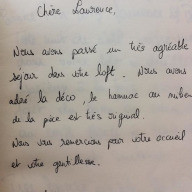 Chère Laurence,
Nous avons passé un très agréable
séjour dans votre loft. Nous avons
adoré la déco, le hamac au milieu
de la pièce est très original.
Nous vous remercions pour votre accueil
et votre gentillesse.